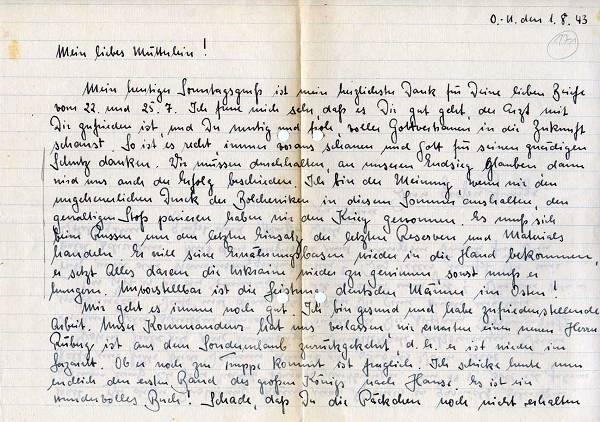 O.-U. den 1.8.43
171
Mein liebes Mütterlein!
Mein heutiger Sonntagsgruß ist mein herzlichster Dank für Deine lieben Briefe
vom 22. und 25.7. Ich freue mich sehr, daß es Dir gut geht, der Arzt mit
Dir zufrieden ist, und Du mutig und froh, voller Gottvertrauen in die Zukunft
schaust. So ist es recht, immer voraus schauen und Gott für seinen gnädigen
Schutz danken. Wir müssen durchhalten, an unseren Endsieg glauben dann
wird uns auch der Erfolg beschieden. Ich bin der Meinung, wenn wir den
ungeheuerlichen Druck der Bolschewiken in diesem Sommer aushalten, den
gewaltigen Stoß parieren haben wir den Krieg gewonnen. Es muß sich
beim Russen um den letzten Einsatz der letzten Reserven und Materials
handeln. Er will seine Ernährungsbasen wieder in die Hand bekommen,
er setzt Alles daran die Ukraine wieder zu gewinnen sonst muß er
hungern. Unvorstellbar ist die Leistung deutscher Männer im Osten!
Mir geht es immer noch gut. Ich bin gesund und habe zufriedenstellende
Arbeit. Unser Kommandeur hat uns verlassen, wir erwarten einen neuen Herrn
ist aus dem Sonderurlaub zurückgekehrt, d.h. er ist wieder im
Lazarett. Ob er noch zur Truppe kommt ist fraglich. Ich schicke heute nun
endlich den ersten Band des großen Königs nach Hause. Es ist ein
wundervolles Buch! Schade, daß Du die Päckchen noch nicht erhalten